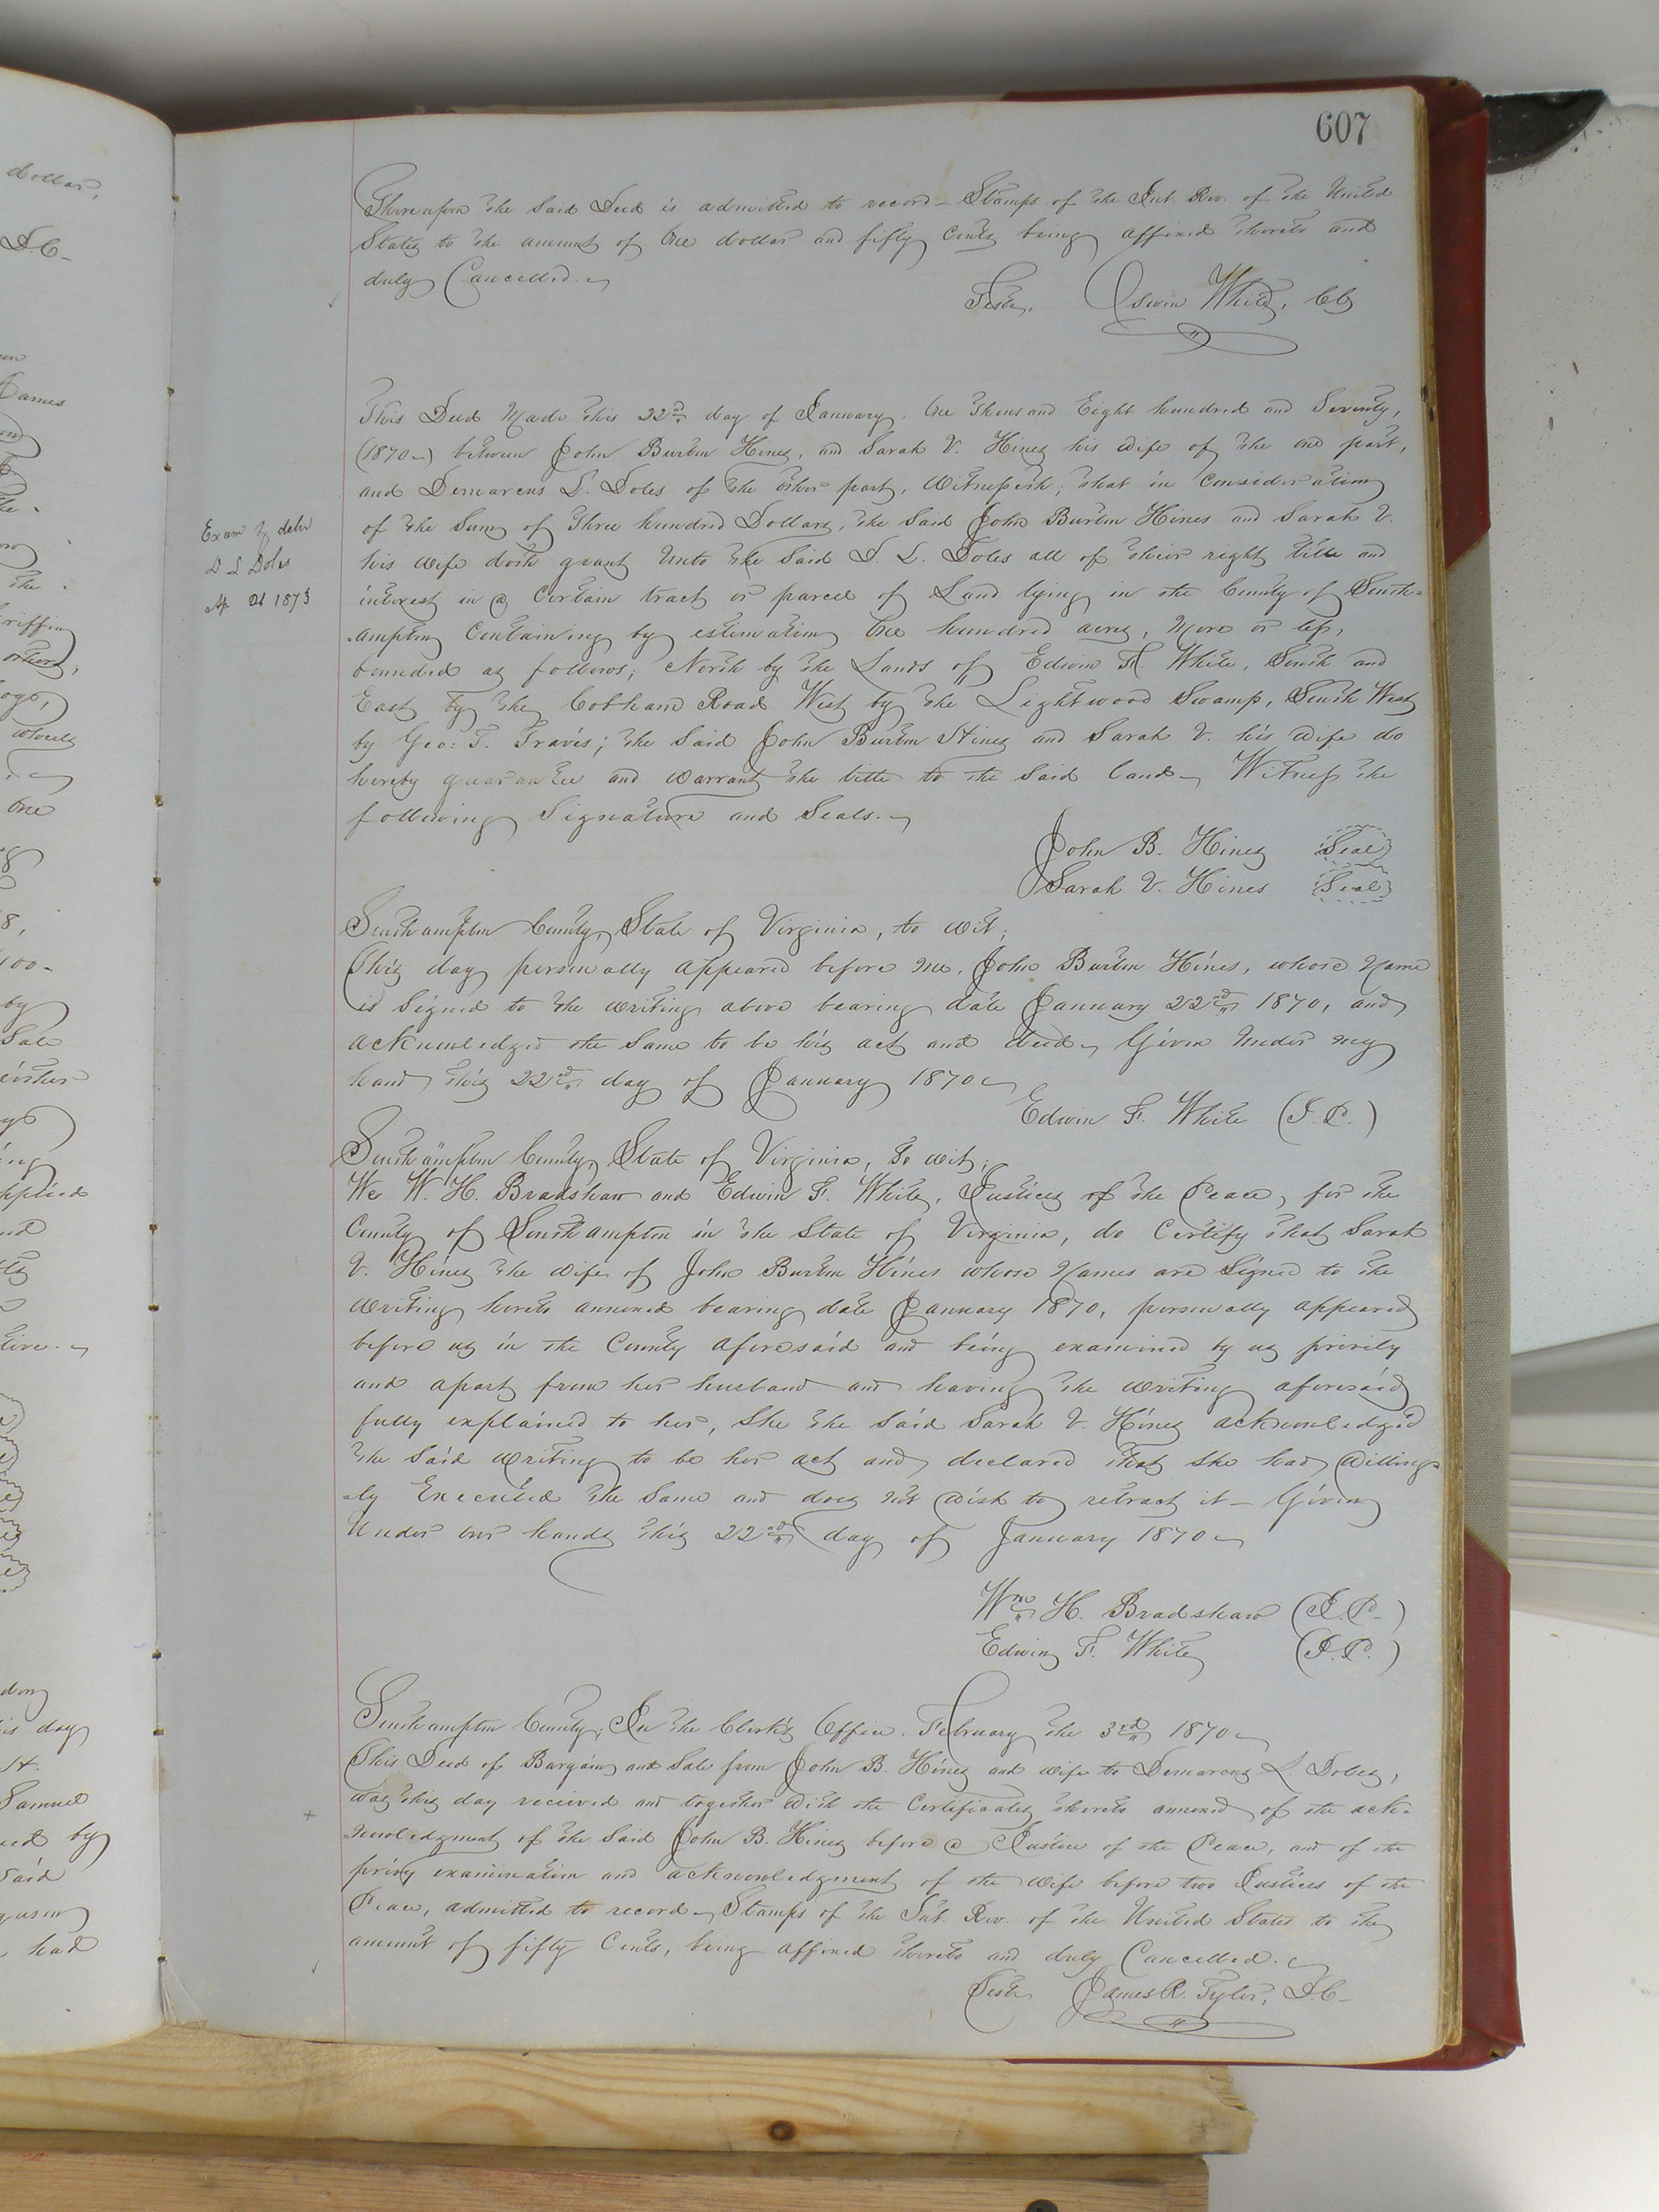 607
Thereupon the Said Deed is admitted to record – Stamps of the Int. Rev. of the United
States to the amount of One dollar and fifty Cents being affixed thereto and
duly Cancelled.
Teste, Edwin White, CC
This Deed Made this 22nd day of January, One Thousand Eight hundred and Seventy,
(1870–) between John Burton Hines, and Sarah V. Hines his wife of the one part,
and Demarcus L. Doles of the other part, Witnesseth; that in Consideration
of the Sum of Three hundred Dollars, the Said John Burton Hines and Sarah V.
his wife doth grant Unto the Said D. L. Doles all of their right title and
interest in a Certain tract or parcel of Land lying in the County of South=
=ampton Containing by estimation One hundred acres, More or less,
bounded as follows; North by the Lands of Edwin F. White, South and
East by the Cobham Road West by the Lightwood Swamp, South West
by Geo: T. Travis; the Said John Burton Hines and Sarah V. his wife do
hereby guarantee and warrant the title to the Said land – Witness the
following Signature and Seals. –
Exam & delv
D L Doles
1873
John B. Hines Seal
Sarah V. Hines Seal
Southampton County, State of Virginia, to wit;
This day personally appeared before me, John Burton Hines, whose Name
is Signed to the writing above bearing date January 22nd 1870, and
acknowledged the Same to be his act and deed – Given Under my
hand this 22nd day of January 1870 –
Edwin F. White (J. P.)
Southampton County, State of Virginia, To wit;
We W. H. Bradshaw and Edwin F. White, Justices of the Peace, for the
County of Southampton in the State of Virginia, do Certify that Sarah
V. Hines the wife of John Burton Hines whose Names are Signed to the
writing hereto annexed bearing date January 1870, personally appeared
before us in the County aforesaid and being examined by us privily
and apart from her husband and having the writing aforesaid
fully explained to her, She the Said Sarah V. Hines acknowledged
the Said writing to be her act and declared that She had willing=
=ly Executed the Same and does not wish to retract it – Given
Under our hands this 22nd day of January 1870 –
Wm H. Bradshaw (J. P.)
Edwin F. White (J. P.)
Southampton County, In the Clerk's Office, February the 3rd 1870 –
This Deed of Bargain and Sale from John B. Hines and wife to Demarcus L. Doles,
was this day received and together with the Certificates thereto annexed of the ack=
nowledgment of the Said John B. Hines before a Justice of the Peace, and of the
privy examination and acknowledgment of the wife before two Justices of the
Peace, admitted to record – Stamps of the Int. Rev. of the United States to the
amount of fifty Cents, being affixed thereto and duly Cancelled. –
Teste James R. Tyler, D. C.